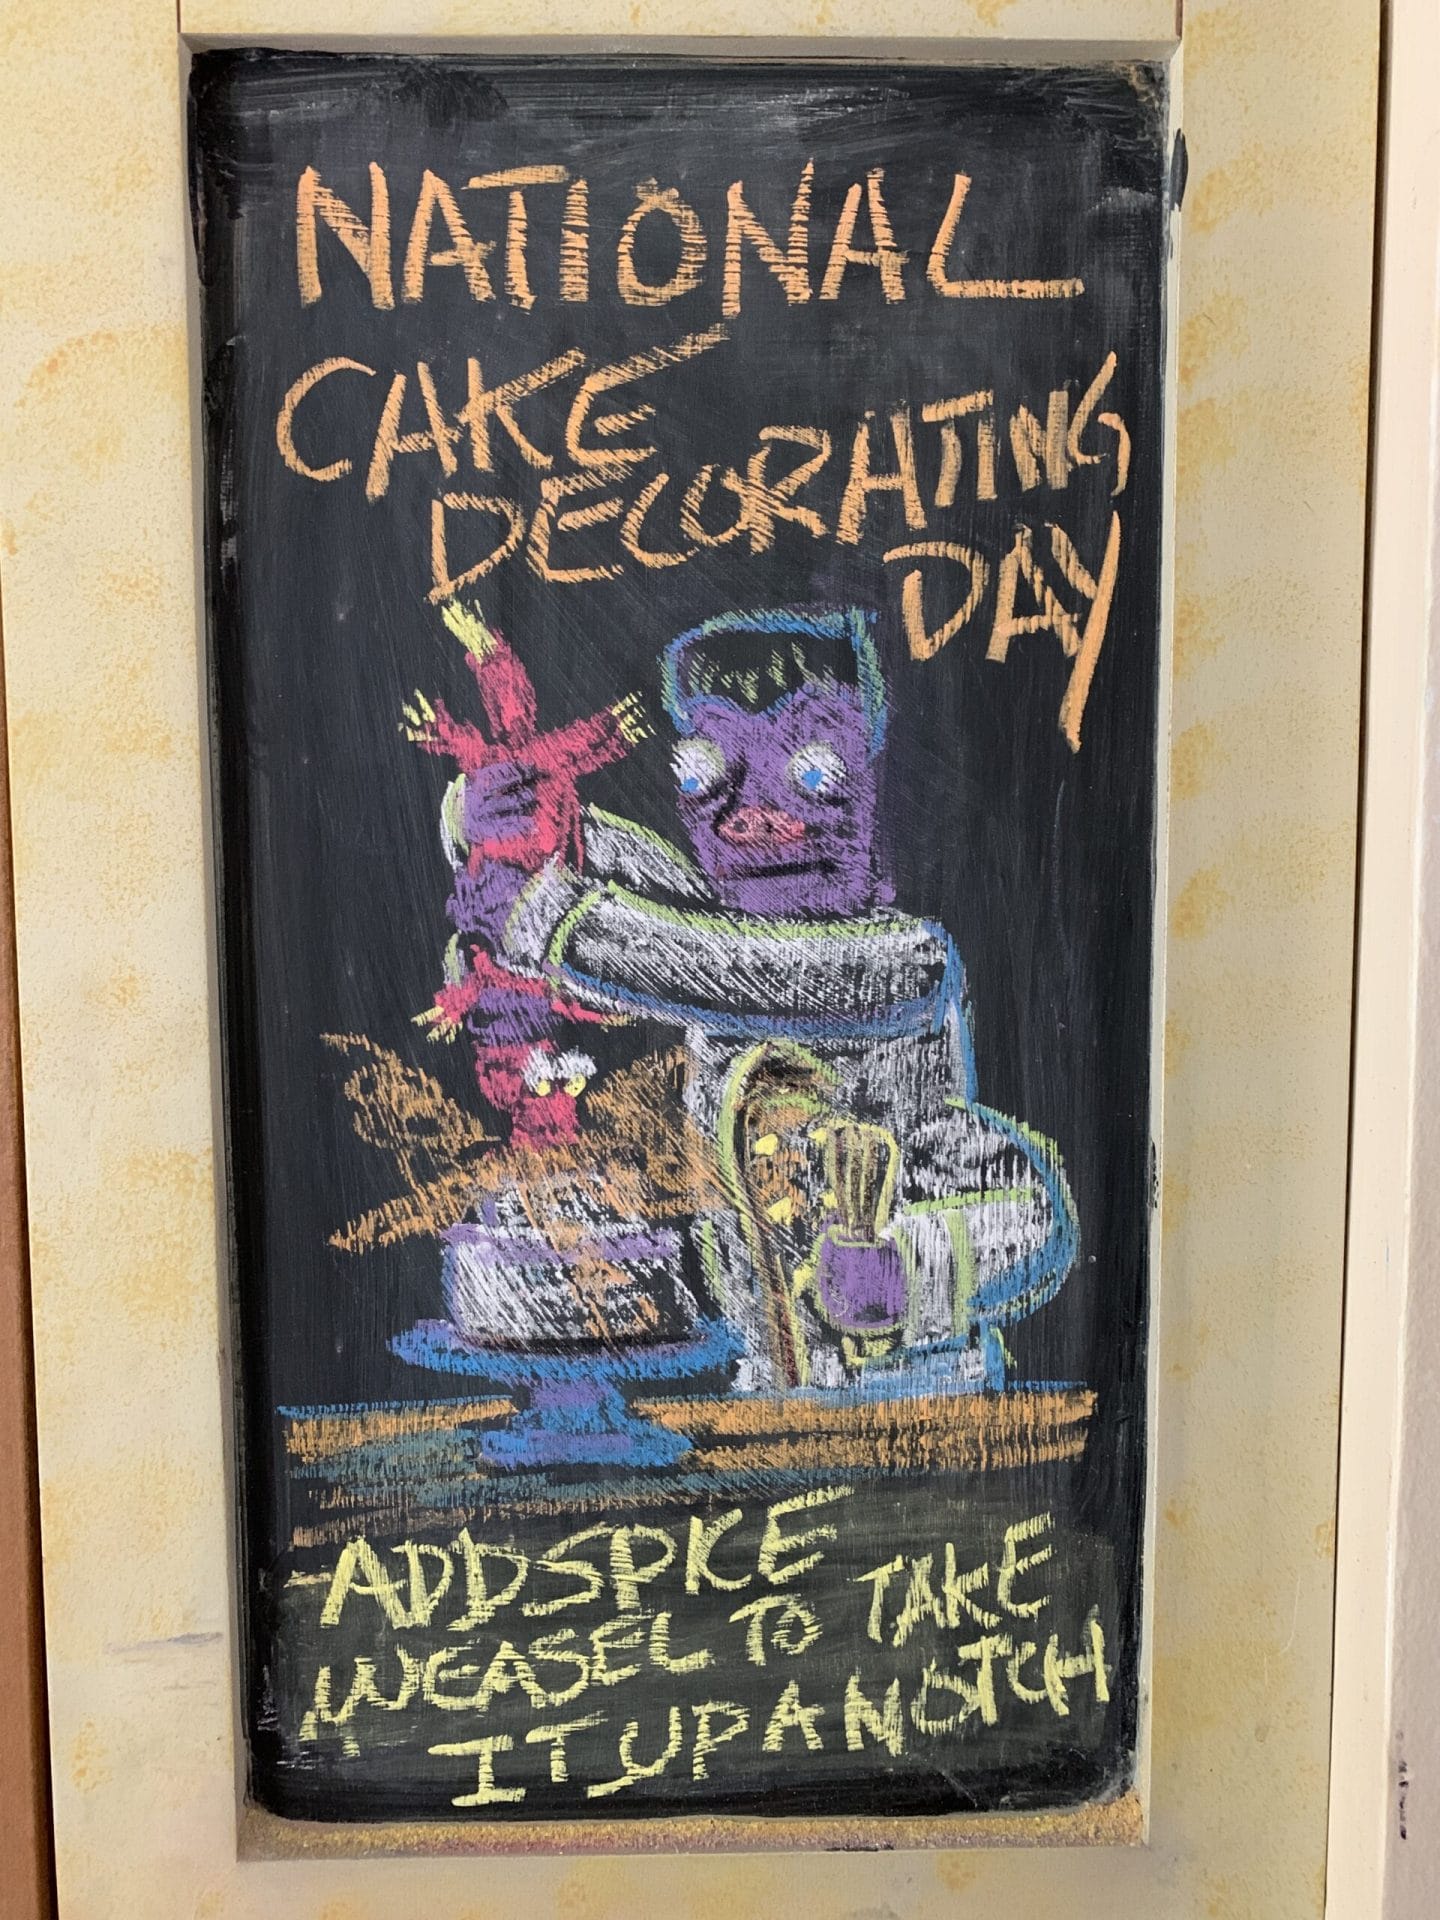 NATIONAL
CAKE
DECORATING
DAY
ADD SPICE
WEASEL TO TAKE
IT UP A NOTCH